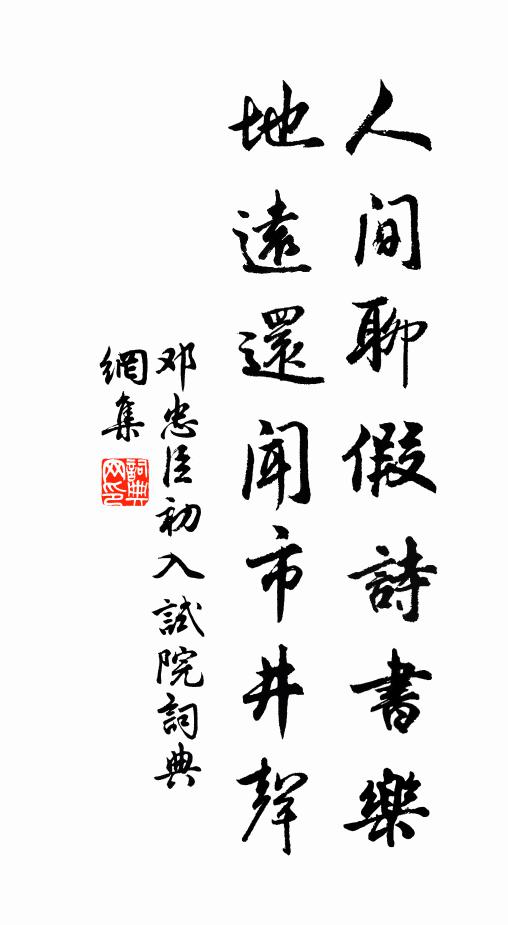 人间聊假詩書樂
地遠還闻市井聲
邓忠臣初入試院詞典
網集
詞典网印